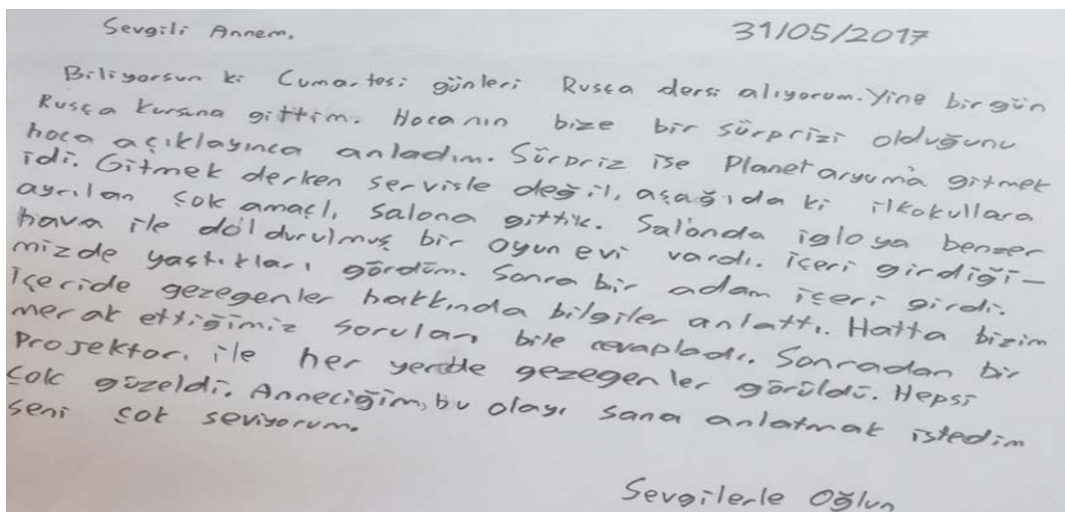 Sevgili Annem, 31/05/2017
Biliyorsun ki Cumartesi günleri Rusça dersi alıyorum. Yine bir gün
Rusça kursuna gittim. Hocanın bize bir sürprizi olduğunu
hoca açıklayınca anladım. Sürpriz ise Planetaryuma gitmek
idi. Gitmek derken servisle değil, aşağıda ki ilkokullara
ayrılan çok amaçlı, salona gittik. Salonda igloya benzer
hava ile doldurulmuş bir oyun evi vardı. içeri girdiği-
mizde yastıkları gördüm. Sonra bir adam içeri girdi.
İçeride gezegenler hakkında bilgiler anlattı. Hatta bizim
merak ettiğimiz soruları bile cevapladı. Sonradan bir
Projektör, ile her yerde gezegenler görüldü. Hepsi
çok güzeldi. Anneciğim, bu olayı sana anlatmak istedim
seni çok seviyorum.
Sevgilerle Oğlun